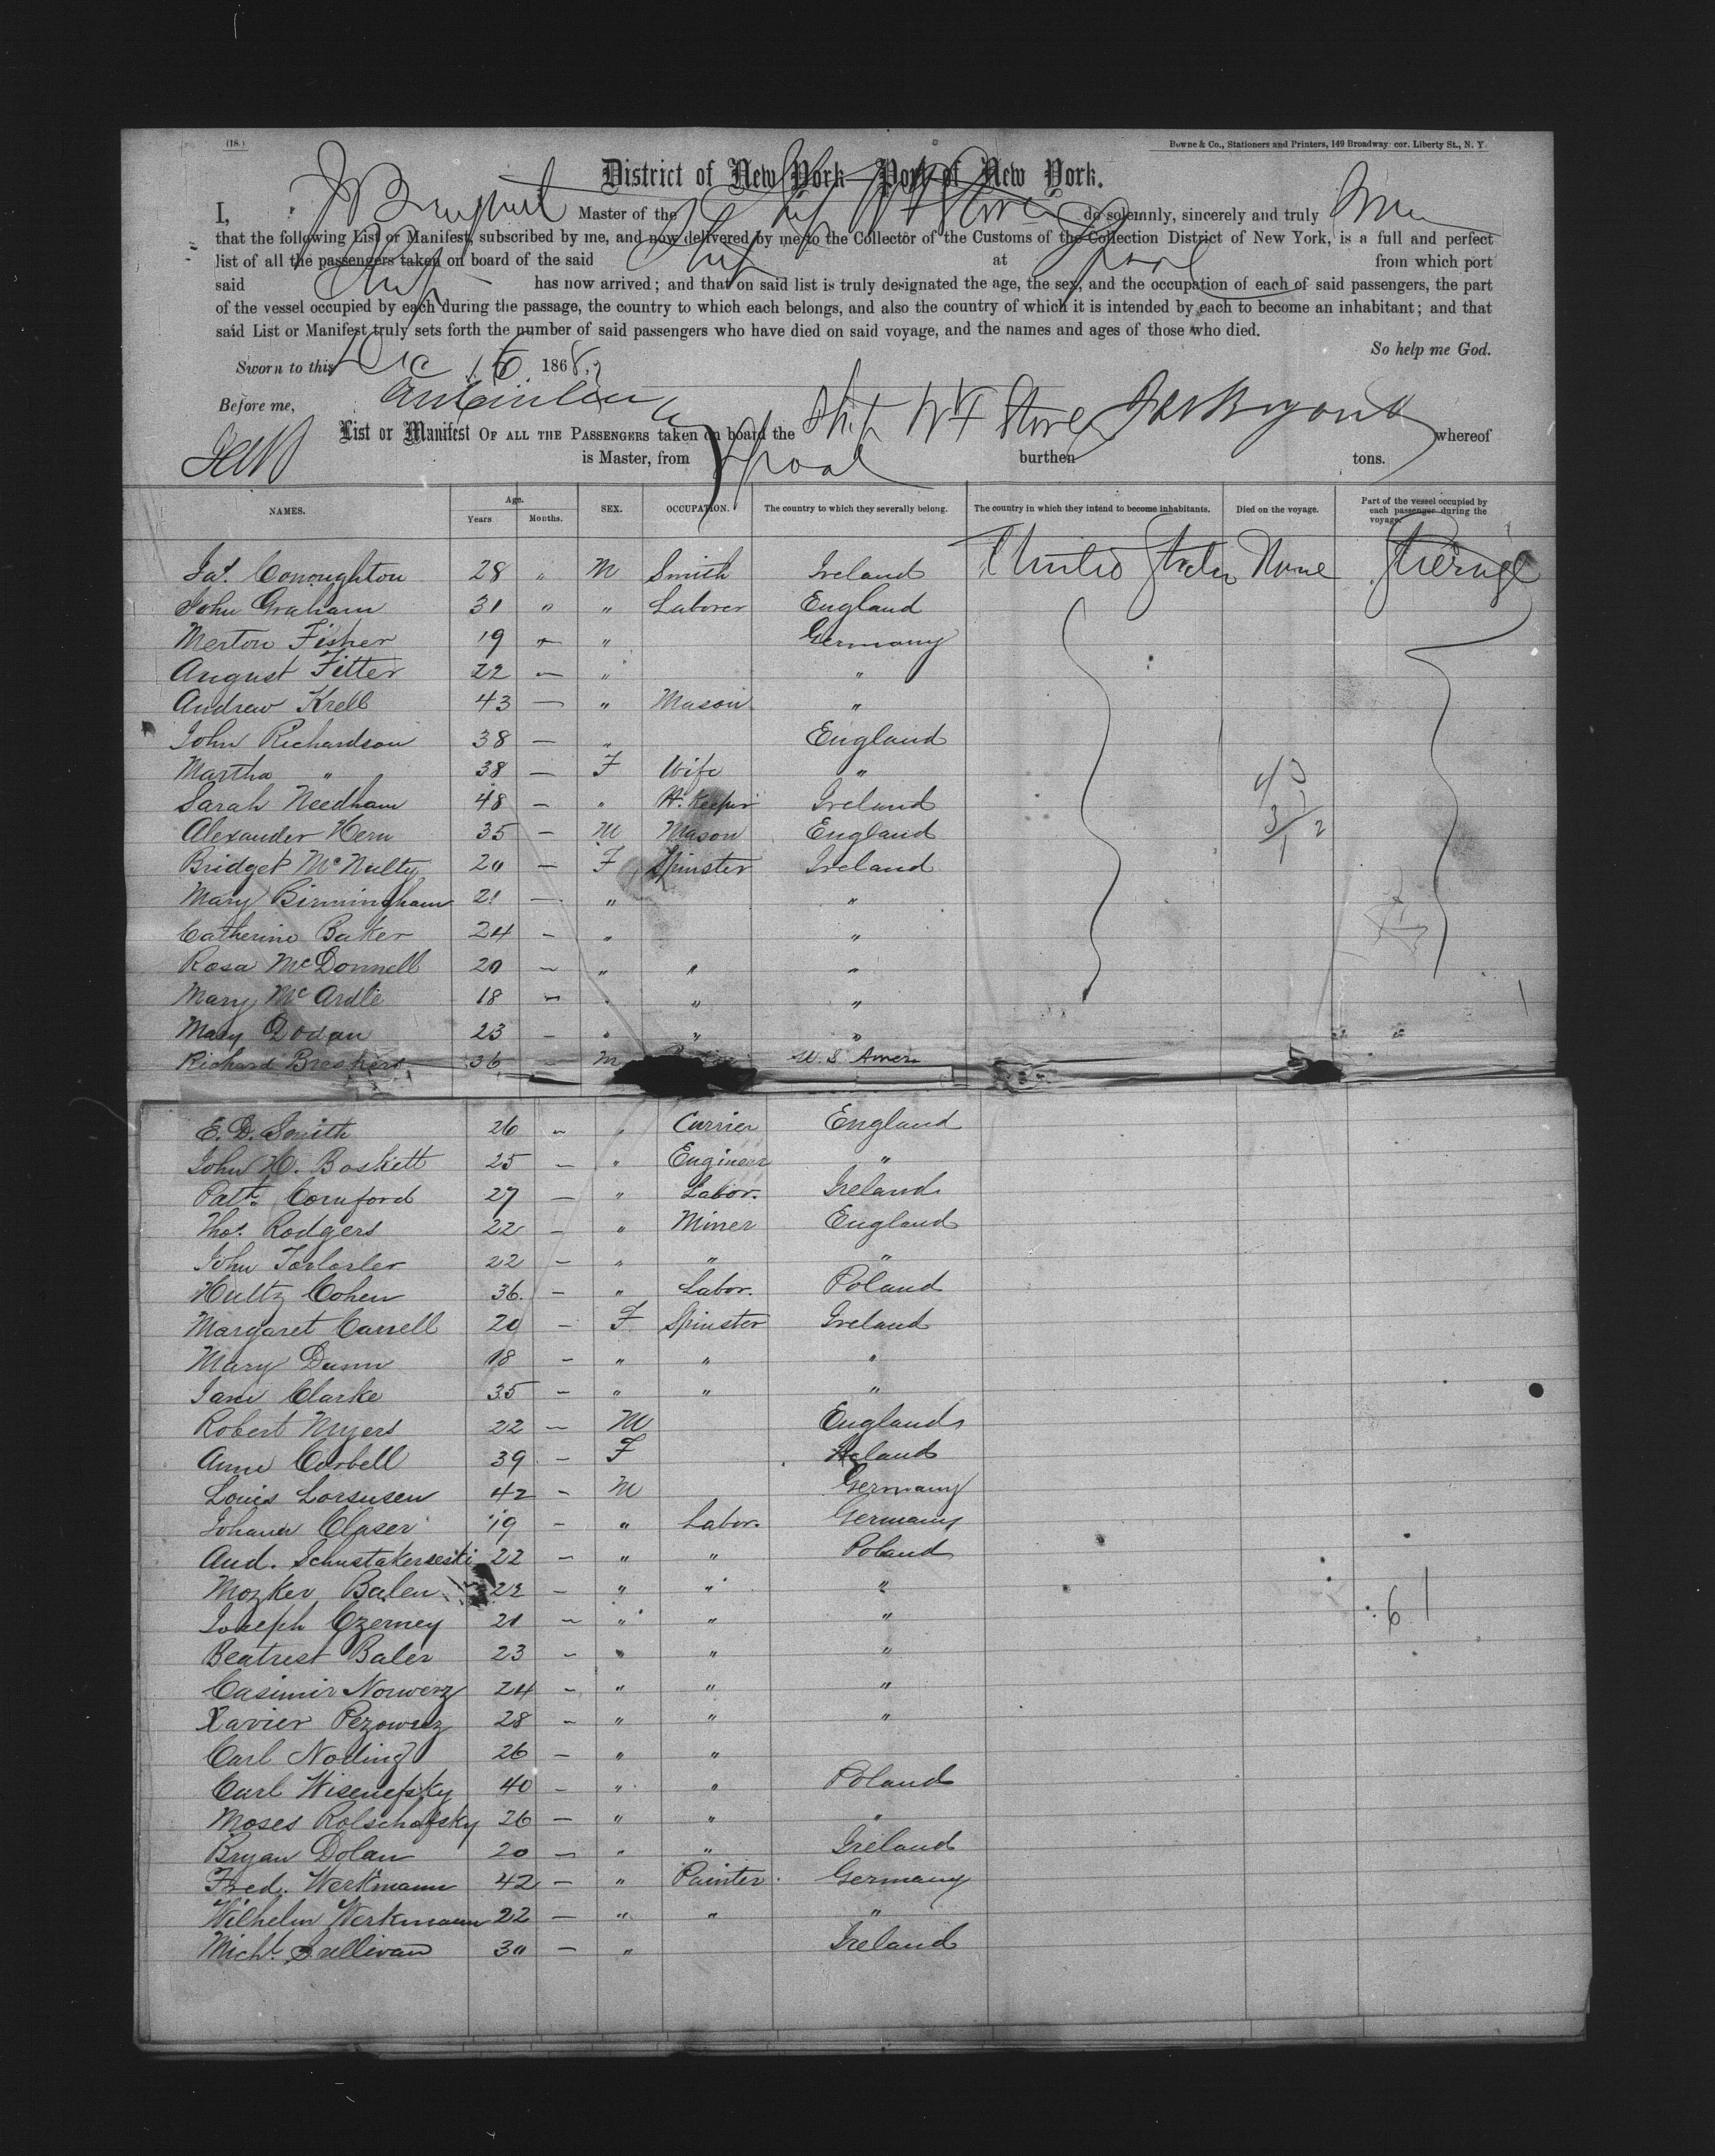 (18.)
Bowne & Co., Stationers and Printers, 149 Broadway cor. Liberty St., N. Y.
District of New York—Port of New York.
I, Master of the Ship W F Storer do solemnly, sincerely and truly
that the following List or Manifest, subscribed by me, and now delivered by me to the Collector of the Customs of the Collection District of New York, is a full and perfect
list of all the passengers taken on board of the said Ship at Lpool from which port
said Ship has now arrived; and that on said list is truly designated the age, the sex, and the occupation of each of said passengers, the part
of the vessel occupied by each during the passage, the country to which each belongs, and also the country of which it is intended by each to become an inhabitant; and that
said List or Manifest truly sets forth the number of said passengers who have died on said voyage, and the names and ages of those who died.
So help me God.
Sworn to this Dec 16 1868
Before me,
List or Manifest OF ALL THE PASSENGERS taken on board the Ship W F Storer whereof
is Master, from Lpool burthen tons.
NAMES. Age. Years Months. SEX. OCCUPATION. The country to which they severally belong. The country in which they intend to become inhabitants. Died on the voyage. Part of the vessel occupied by each passenger during the voyage.
Jas. Conoughton 28 " M Smith Ireland United States None Steerage
John Graham 31 " " Laborer England
Merton Fisher 19 " " Germany
August Fitter 22 — " "
Andrew Krell 43 — " Mason "
John Richardson 38 — " England
Martha " 38 — F Wife "
Sarah Needham 48 — " H. Keeper Ireland
Alexander Hern 35 — M Mason England
Bridget McNulty 20 — F Spinster Ireland
Mary Birmingham 21 — " "
Catherine Baker 24 — " "
Rosa McDonnell 20 — " " "
Mary McArdle 18 — " " "
Mary Dodan 23 — " " "
Richard Breskers 36 — M U. S. Amer.
E. D. Smith 26 — " Currier England
John H. Baskett 25 — " Engineer "
Patk. Cornford 27 — " Labor. Ireland
Thos. Rodgers 22 — " Miner England
John 22 — " " "
Hultz Cohen 36. — " Labor. Poland
Margaret Carrell 20 — F Spinster Ireland
Mary Dunn 18 — " " "
Jane Clarke 35 — " " "
Robert Myers 22 — M England
Anne Corbell 39 — F
Louis Lorsusen 42 — M Germany
Johann Claser 19 — " Labor. Germany
And. 22 — " " Poland
Mozker Balen 22 — " " "
Joseph Czerney 21 — " " "
Beatrest Baler 23 — " " "
Casimir Norwerz 24 — " " "
Xavier Pezowsez 28 — " " "
Carl Noding 26 — " "
Carl Wisenefsky 40 — " " Poland
Moses Rolschofsky 26 — " " "
Bryan Dolan 20 — " " Ireland
Fred. Werkmann 42 — " Painter Germany
Wilhelm Werkmann 22 — " " "
Michl. Sullivan 30 — " Ireland
61